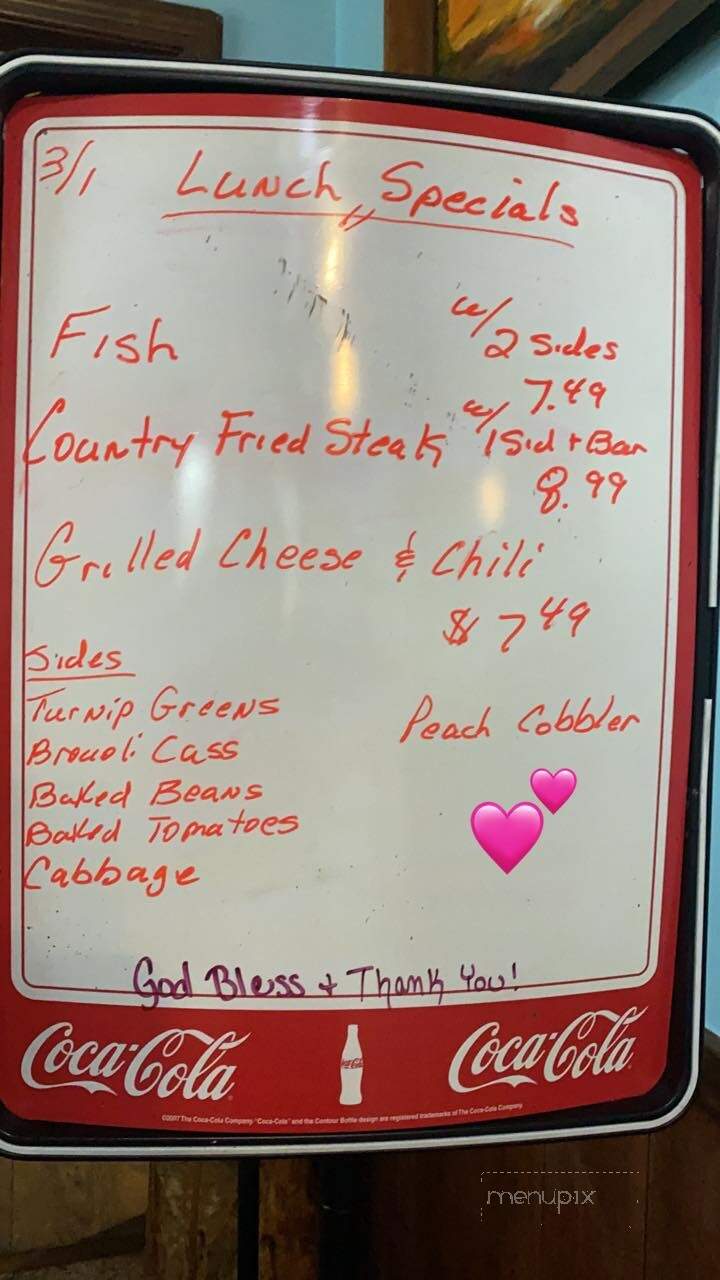 3/1 Lunch Specials
Fish w/ 2 Sides
7.49
Country Fried Steak w/ 1 Sid + Bar
8.99
Grilled Cheese & Chili
$ 7 49
Sides
Turnip Greens
Peach Cobbler
Brocoli Cass
Baked Beans
Baked Tomatoes
Cabbage
God Bless + Thank You!
Coca-Cola Coca-Cola Coca-Cola
©2007 The Coca-Cola Company. "Coca-Cola" and the Contour Bottle design are registered trademarks of The Coca-Cola Company.
menupix